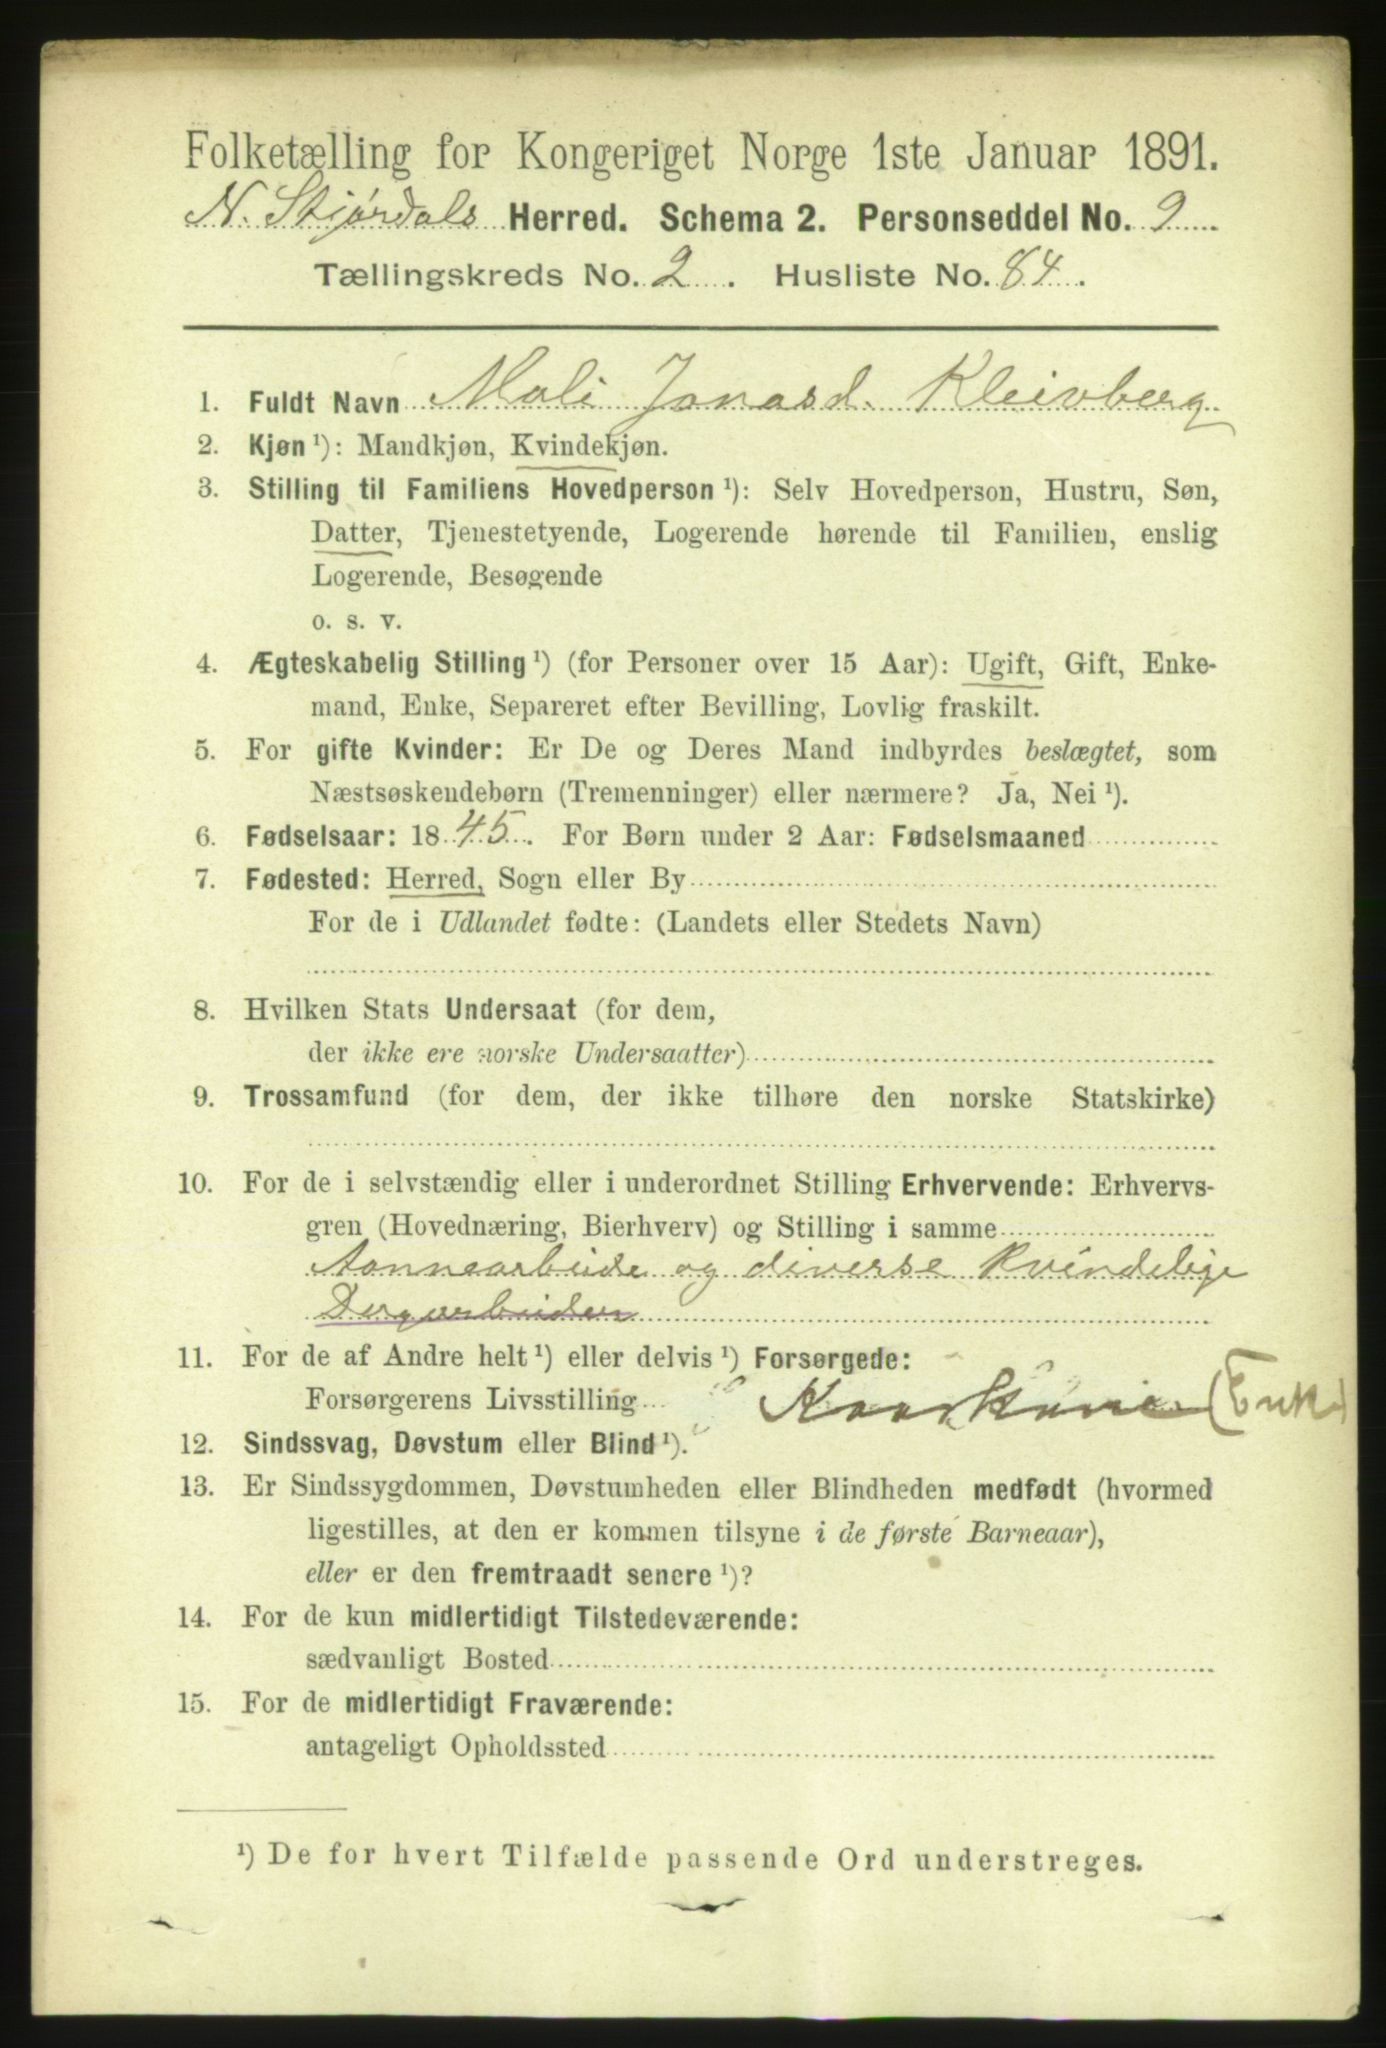 Folketælling for Kongeriget Norge 1ste Januar 1891.
N. Stjørdals Herred. Schema 2. Personseddel No. 9
Tællingskreds No. 2. Husliste No. 84.
1. Fuldt Navn Mali Jonasd. Kleivberg
2. Kjøn ¹): Mandkjøn, Kvindekjøn.
3. Stilling til Familiens Hovedperson ¹): Selv Hovedperson, Hustru, Søn,
Datter, Tjenestetyende, Logerende hørende til Familien, enslig
Logerende, Besøgende
o. s. v.
4. Ægteskabelig Stilling ¹) (for Personer over 15 Aar): Ugift, Gift, Enke-
mand, Enke, Separeret efter Bevilling, Lovlig fraskilt.
5. For gifte Kvinder: Er De og Deres Mand indbyrdes beslægtet, som
Næstsøskendebørn (Tremenninger) eller nærmere? Ja, Nei ¹).
6. Fødselsaar: 1845. For Børn under 2 Aar: Fødselsmaaned
7. Fødested: Herred, Sogn eller By
For de i Udlandet fødte: (Landets eller Stedets Navn)
8. Hvilken Stats Undersaat (for dem,
der ikke ere norske Undersaatter)
9. Trossamfund (for dem, der ikke tilhøre den norske Statskirke)
10. For de i selvstændig eller i underordnet Stilling Erhvervende: Erhvervs-
gren (Hovednæring, Bierhverv) og Stilling i samme
Aonnearbeide og diverse kvindelige
Dagarbeider
11. For de af Andre helt ¹) eller delvis ¹) Forsørgede:
Forsørgerens Livsstilling Kaarkone (Enke)
12. Sindssvag, Døvstum eller Blind ¹).
13. Er Sindssygdommen, Døvstumheden eller Blindheden medfødt (hvormed
ligestilles, at den er kommen tilsyne i de første Barneaar),
eller er den fremtraadt senere ¹)?
14. For de kun midlertidigt Tilstedeværende:
sædvanligt Bosted
15. For de midlertidigt Fraværende:
antageligt Opholdssted
¹) De for hvert Tilfælde passende Ord understreges.